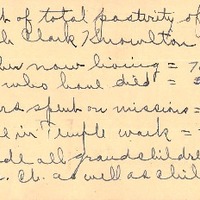 of total posterity of
Clark Knowlton
now living = 7
who have died =
spent on missions =
in Temple work =
all grandchildren
as well as chil